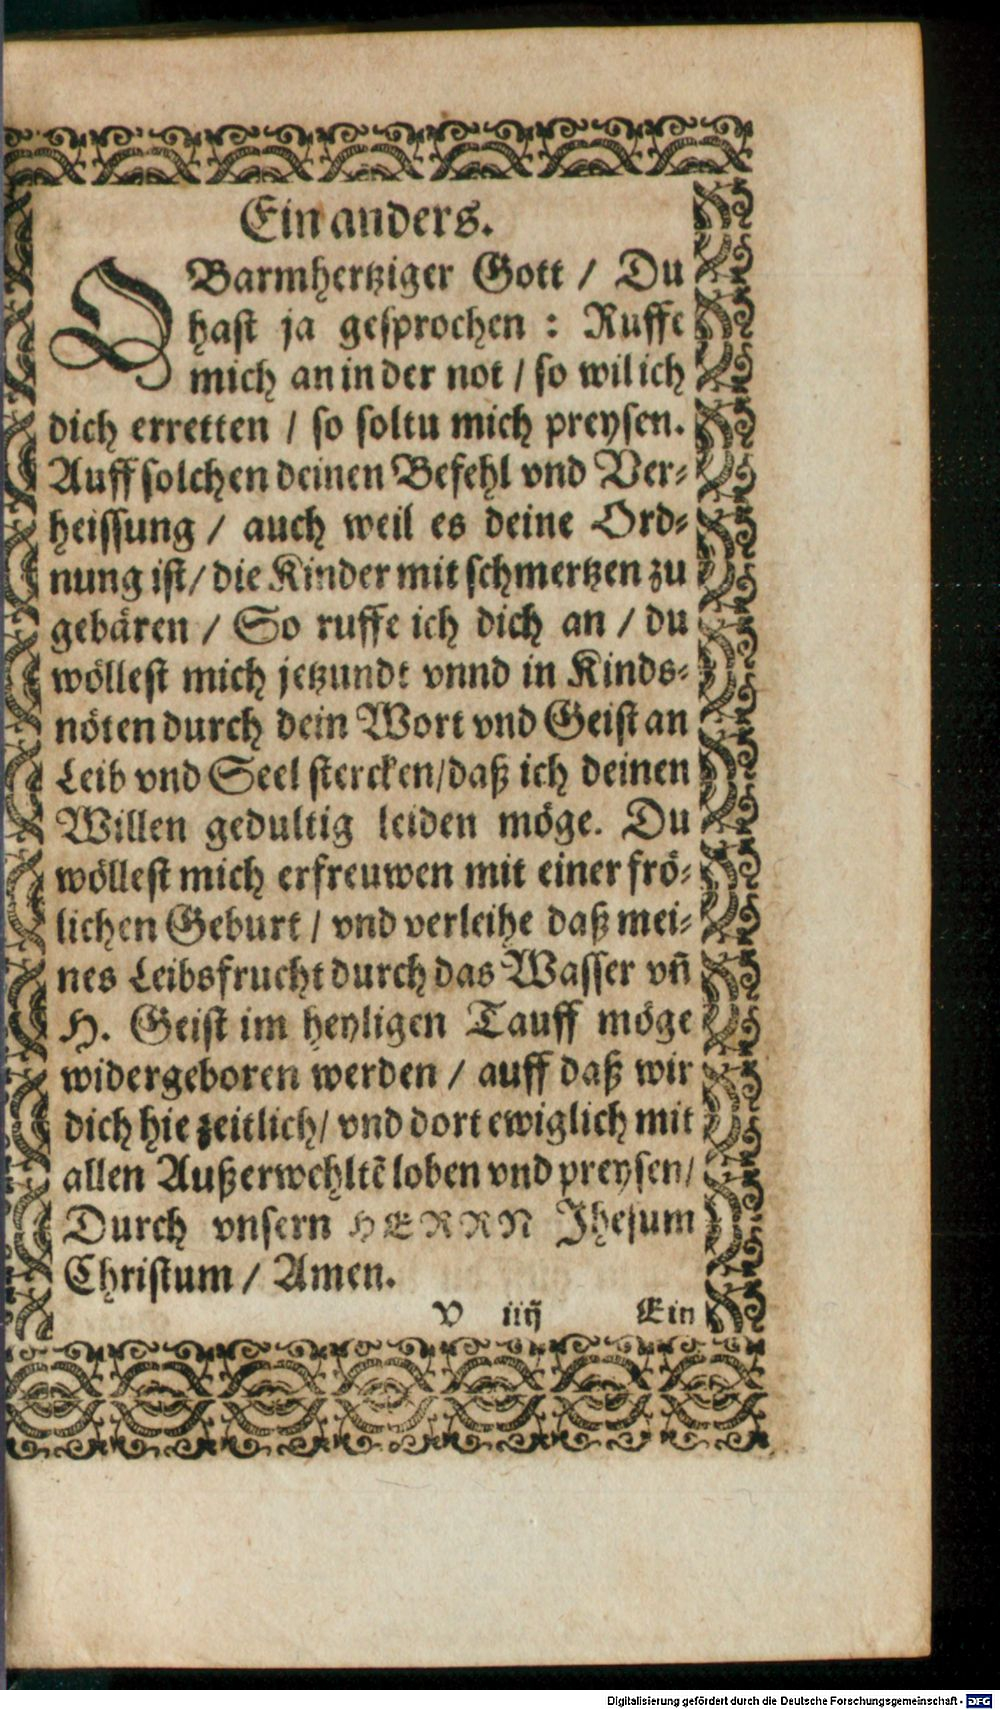 Ein anders.
O Barmhertziger Gott / Du
hast ja gesprochen : Ruffe
mich an in der not / so wil ich
dich erretten / so soltu mich preysen.
Auff solchen deinen Befehl vnd Ver-
heissung / auch weil es deine Ord-
nung ist / die Kinder mit schmertzen zu
gebären / So ruffe ich dich an / du
wöllest mich jetzundt vnnd in Kinds-
nöten durch dein Wort vnd Geist an
Leib vnd Seel stercken / daß ich deinen
Willen gedultig leiden möge. Du
wöllest mich erfreuwen mit einer frö-
lichen Geburt / vnd verleihe daß mei-
nes Leibsfrucht durch das Wasser vñ
H. Geist im heyligen Tauff möge
widergeboren werden / auff daß wir
dich hie zeitlich / vnd dort ewiglich mit
allen Außerwehltẽ loben vnd preysen /
Durch vnsern HERRN Jhesum
Christum / Amen.
v iiij Ein
Digitalisierung gefördert durch die Deutsche Forschungsgemeinschaft - DFG